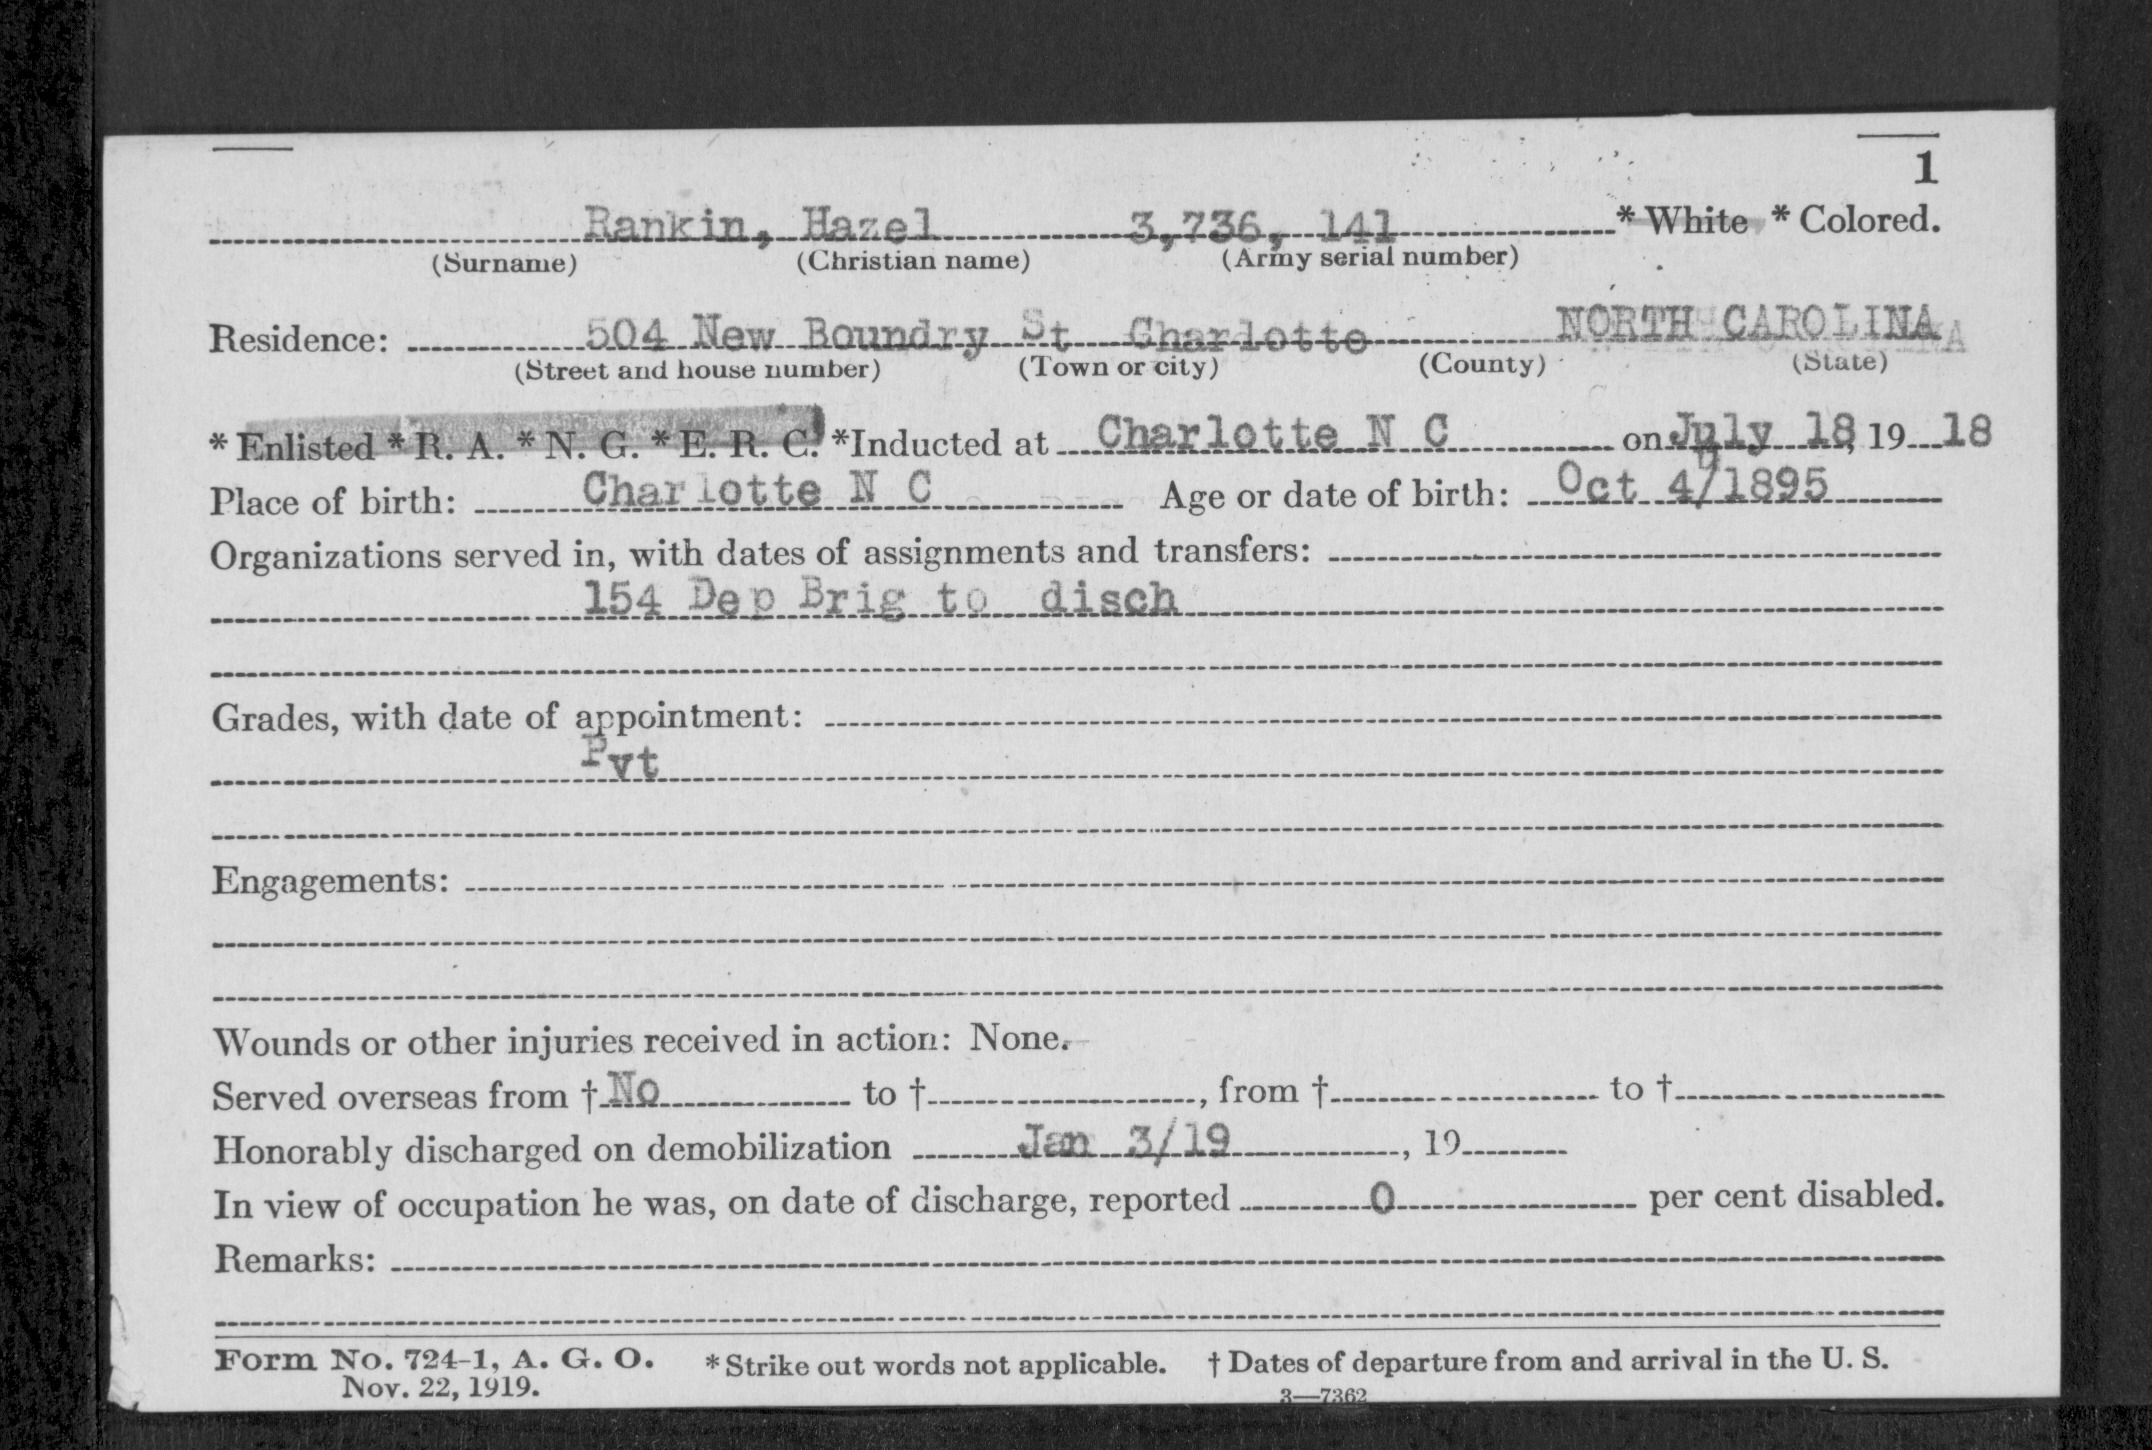 1
Rankin, Hazel 3,736, 141 * White * Colored.
(Surname) (Christian name) (Army serial number)
Residence: 504 New Boundry St Charlotte NORTH CAROLINA
(Street and house number) (Town or city) (County) (State)
* Enlisted * R. A. * N. G. * E. R. C. *Inducted at Charlotte N C on July 18, 19 18
Place of birth: Charlotte N C Age or date of birth: Oct 4/1895
Organizations served in, with dates of assignments and transfers:
154 Dep Brig to disch
Grades, with date of appointment:
Pvt
Engagements:
Wounds or other injuries received in action: None.
Served overseas from † No to †, from † to †
Honorably discharged on demobilization Jan 3/19, 19
In view of occupation he was, on date of discharge, reported 0 per cent disabled.
Remarks:
Form No. 724-1, A. G. O. * Strike out words not applicable. † Dates of departure from and arrival in the U. S.
Nov. 22, 1919. 3—7362